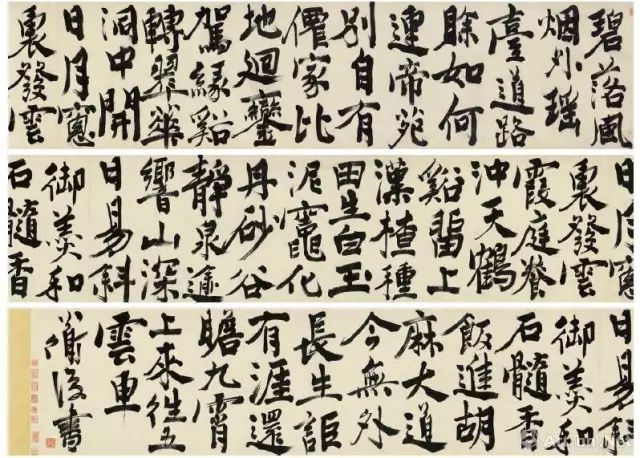 碧落風
烟外瑶
臺道路
賖如何
連帝苑
別自有
僊家比
地迴鑾
駕緣谿
轉翠華
洞中開
日月窻
裏發雲
日月窻
裏發雲
霞庭養
沖天鶴
谿留上
漢楂種
田生白玉
泥竈化
丹砂谷
靜泉逾
響山深
日易斜
御羹和
石髓香
日易斜
御羹和
石髓香
飯進胡
麻大道
今無外
長生詎
有涯還
瞻九霄
上來往五
雲車
書
Artron.Net